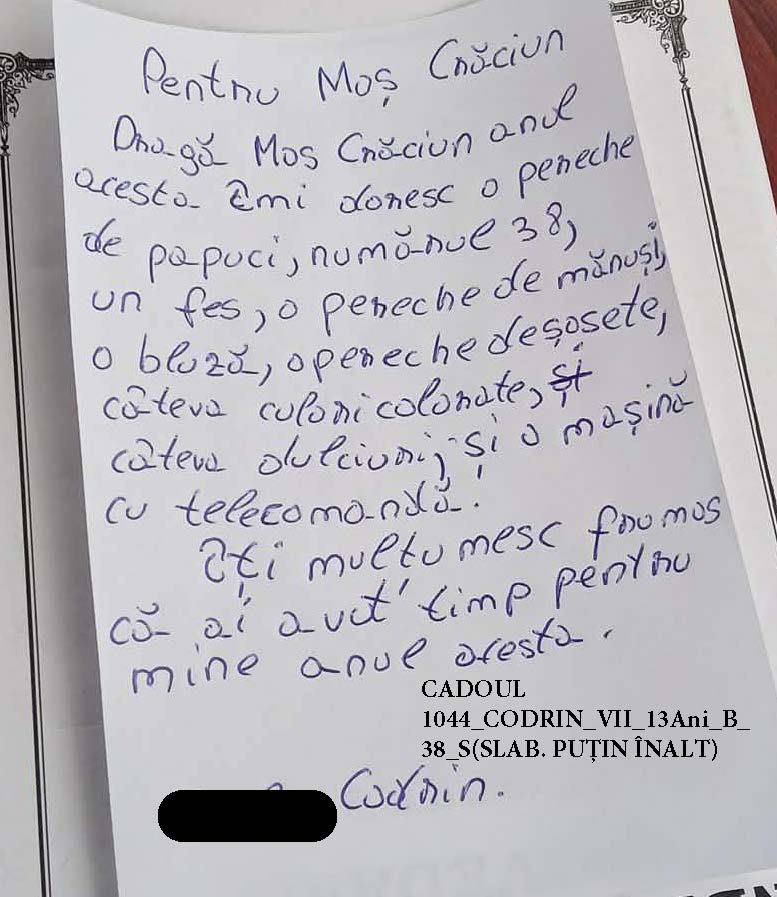 Pentru Moș Crăciun
Dragă Moș Crăciun anul
acesta îmi doresc o pereche
de papuci, numărul 38,
un fes, o pereche de mănuși,
o bluză, o pereche de șosete,
câteva culori colorate, și
câteva dulciuri, și o mașină
cu telecomandă.
Îți mulțumesc frumos
că ai avut timp pentru
mine anul acesta.
CADOUL
1044_CODRIN_VII_13Ani_B_
38_S(SLAB. PUȚIN ÎNALT)
Codrin.